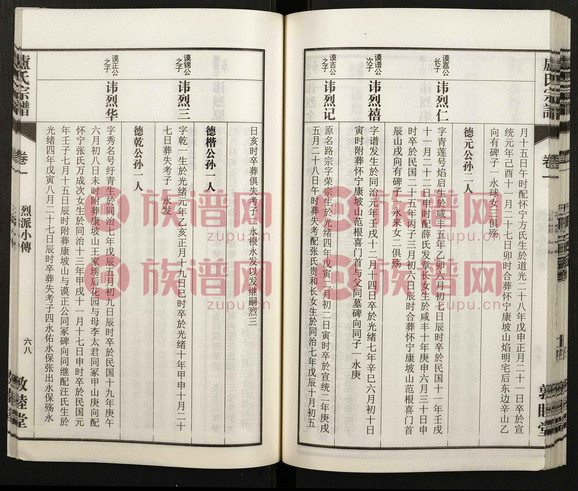 卢氏宗谱
卷一
月十五日午时配怀宁方氏生於道光二十八年戊申正月二十一日卒於宣
统元年己酉十一月二十七日卯时合葬怀宁康坡山焰明宅后东边辛山乙
向有碑子一永球女二俱殇
德元公孙二人
谟嘉公长子
讳烈仁
字青莲号焰启生於咸丰五年乙卯六月初七日辰时卒於民国十一年壬戌
十一月二十一日申时配薛氏发长女生於咸丰十年庚申六月三十日申
时卒於民国二十五年丙子三月初六日辰时合葬怀宁康坡山范根喜门首
辰山戌向有碑子一永来女二俱殇
谟嘉公次子
讳烈禧
字谱发生於同治元年十二月十四日卒於光绪七年辛巳六月初十日
寅时附葬怀宁康坡山范根喜门首与父同墓碑向同子一永庚
谟吉公之子
讳烈记
原名路宗字荣宗生於光绪四年戊寅二月初二日寅时卒於宣统二年庚戌
五月二十八日午时葬失考配张氏贵和长女生於同治七年戊辰十月初五
日亥时卒葬俱失考子二永禄永发以发继嗣烈三
德楷公孙一人
谟锦公之子
讳烈三
字乾一生於光绪元年乙亥正月十九日巳时卒於光绪十年甲申十月二十
七日葬失考子一永发
德乾公孙一人
谟正公之子
讳烈华
字秀名号纡青生於同治七年戊辰五月初九日辰时卒於民国十九年庚午
六月初八日未时附葬康坡山王家塝后花园与母李太君同冢甲山庚向配
怀宁张氏万成次女生於同治十三年甲戌十一月十七日申时卒於民国元
年壬子七月十五日辰时附葬康坡山与谟正公同冢碑向同继配汪氏生於
光绪四年戊寅八月二十七日辰时卒葬失考子四永佑永保张出永保殇永
卢氏宗谱
卷一
烈派小传
六八
敦睦堂
敦睦堂
族谱网
zupu.cn
族谱网
zupu.cn
族谱网
zupu.cn
族谱网
zupu.cn